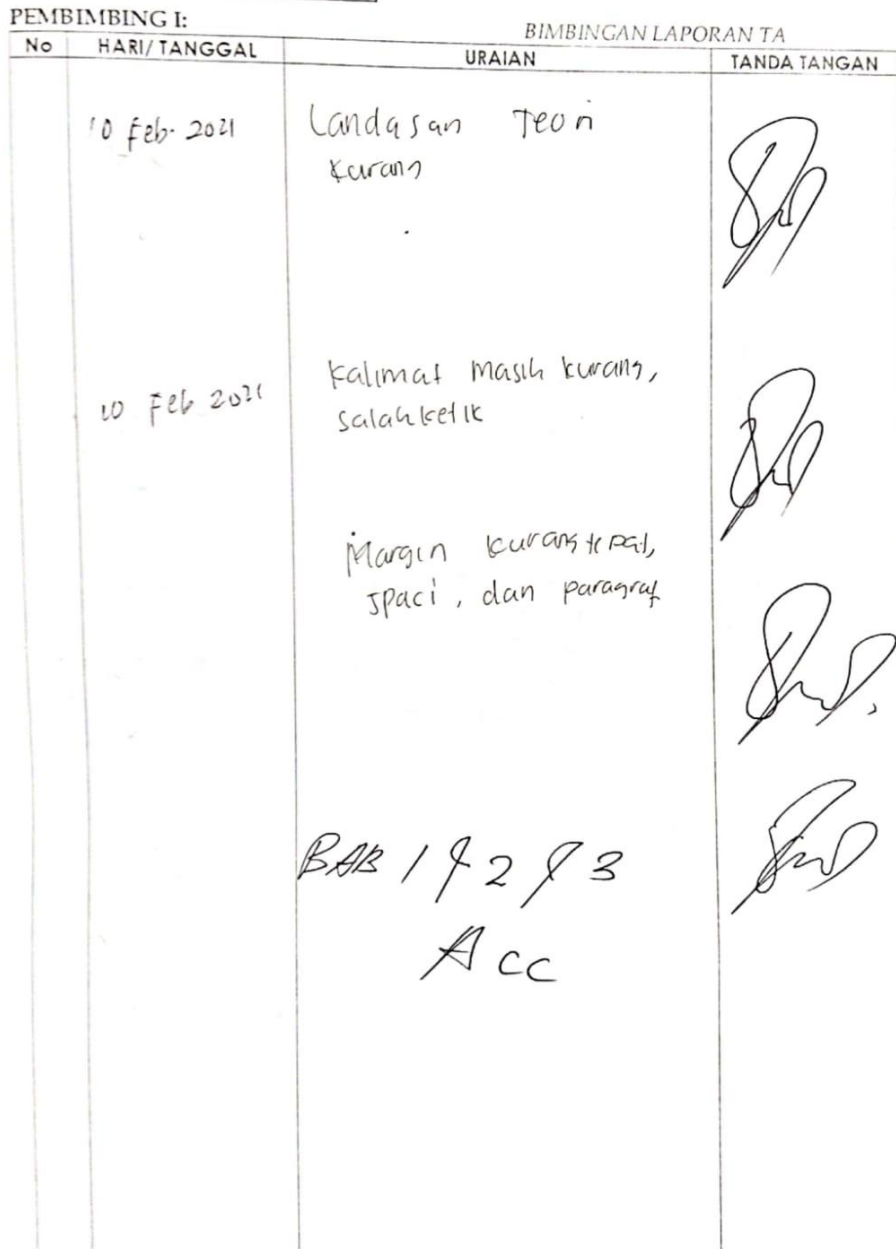 PEMBIMBING I:
BIMBINGAN LAPORAN TA
No HARI/TANGGAL URAIAN TANDA TANGAN
10 Feb. 2021 Landasan Teori
Kurang
10 Feb 2021 Kalimat masih kurang,
salah ketik
Margin kurang tepat,
spaci, dan paragraf
BAB 1 & 2 & 3
Acc